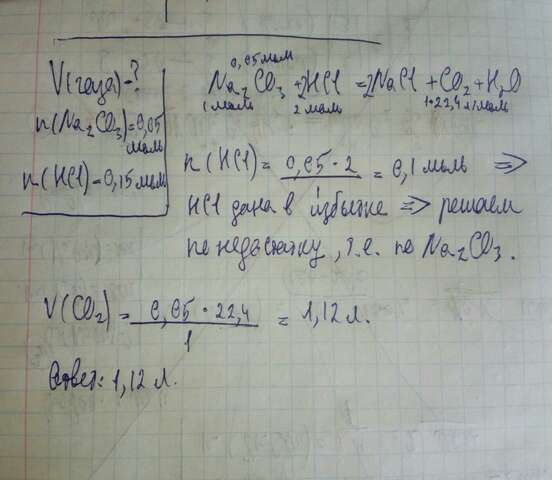 V(газа)-?
n(Na₂CO₃)=0,05 моль
n(HCl)=0,15 моль
0,05 моль
Na₂CO₃ + 2HCl = 2NaCl + CO₂ + H₂O
1 моль 2 моль 1·22,4 л/моль
n(HCl) = 0,05 · 2 / = 0,1 моль =>
HCl дана в избытке => решаем
по недостатку, т.е. по Na₂CO₃.
V(CO₂) = 0,05 · 22,4 / 1 = 1,12 л.
Ответ: 1,12 л.